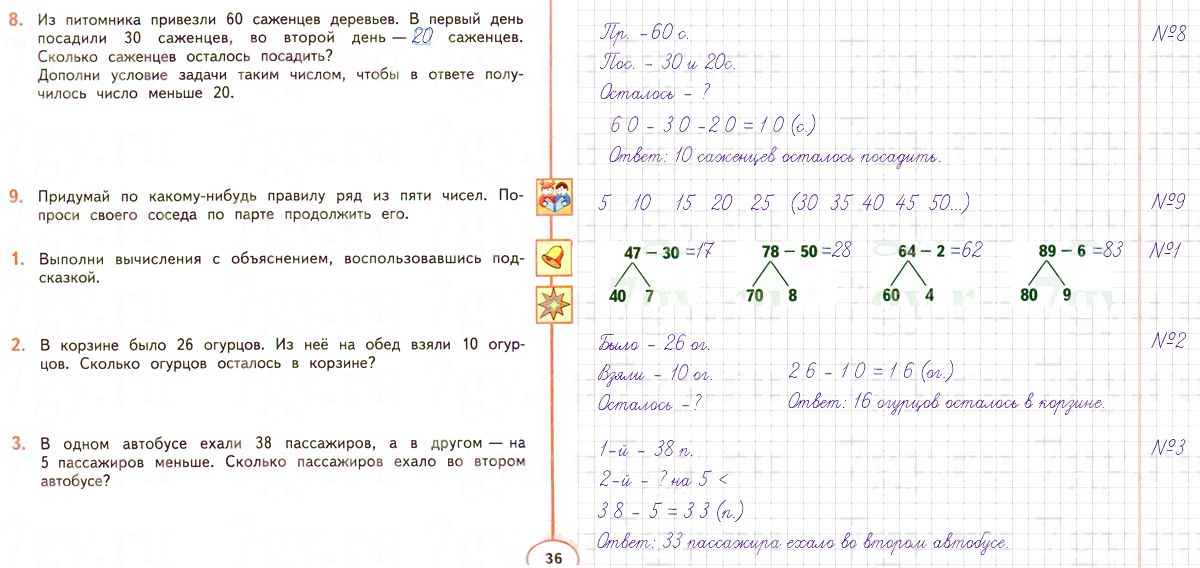 8. Из питомника привезли 60 саженцев деревьев. В первый день
посадили 30 саженцев, во второй день — 20 саженцев.
Сколько саженцев осталось посадить?
Дополни условие задачи таким числом, чтобы в ответе полу-
чилось число меньше 20.
Пр. – 60 с.
№8
Пос. – 30 и 20с.
Осталось – ?
60 – 30 – 20 = 10 (с.)
Ответ: 10 саженцев осталось посадить.
9. Придумай по какому-нибудь правилу ряд из пяти чисел. По-
проси своего соседа по парте продолжить его.
5 10 15 20 25 (30 35 40 45 50...)
№9
1. Выполни вычисления с объяснением, воспользовавшись под-
сказкой.
47 – 30 =17 78 – 50 =28 64 – 2 =62 89 – 6 =83
№1
40 7 70 8 60 4 80 9
2. В корзине было 26 огурцов. Из неё на обед взяли 10 огур-
цов. Сколько огурцов осталось в корзине?
Было – 26 ог.
№2
Взяли – 10 ог.
26 – 10 = 16 (ог.)
Осталось – ?
Ответ: 16 огурцов осталось в корзине.
3. В одном автобусе ехали 38 пассажиров, а в другом — на
5 пассажиров меньше. Сколько пассажиров ехало во втором
автобусе?
1-й – 38 п.
№3
2-й – ? на 5 <
38 – 5 = 33 (п.)
Ответ: 33 пассажира ехало во втором автобусе.
36
7gy.ru